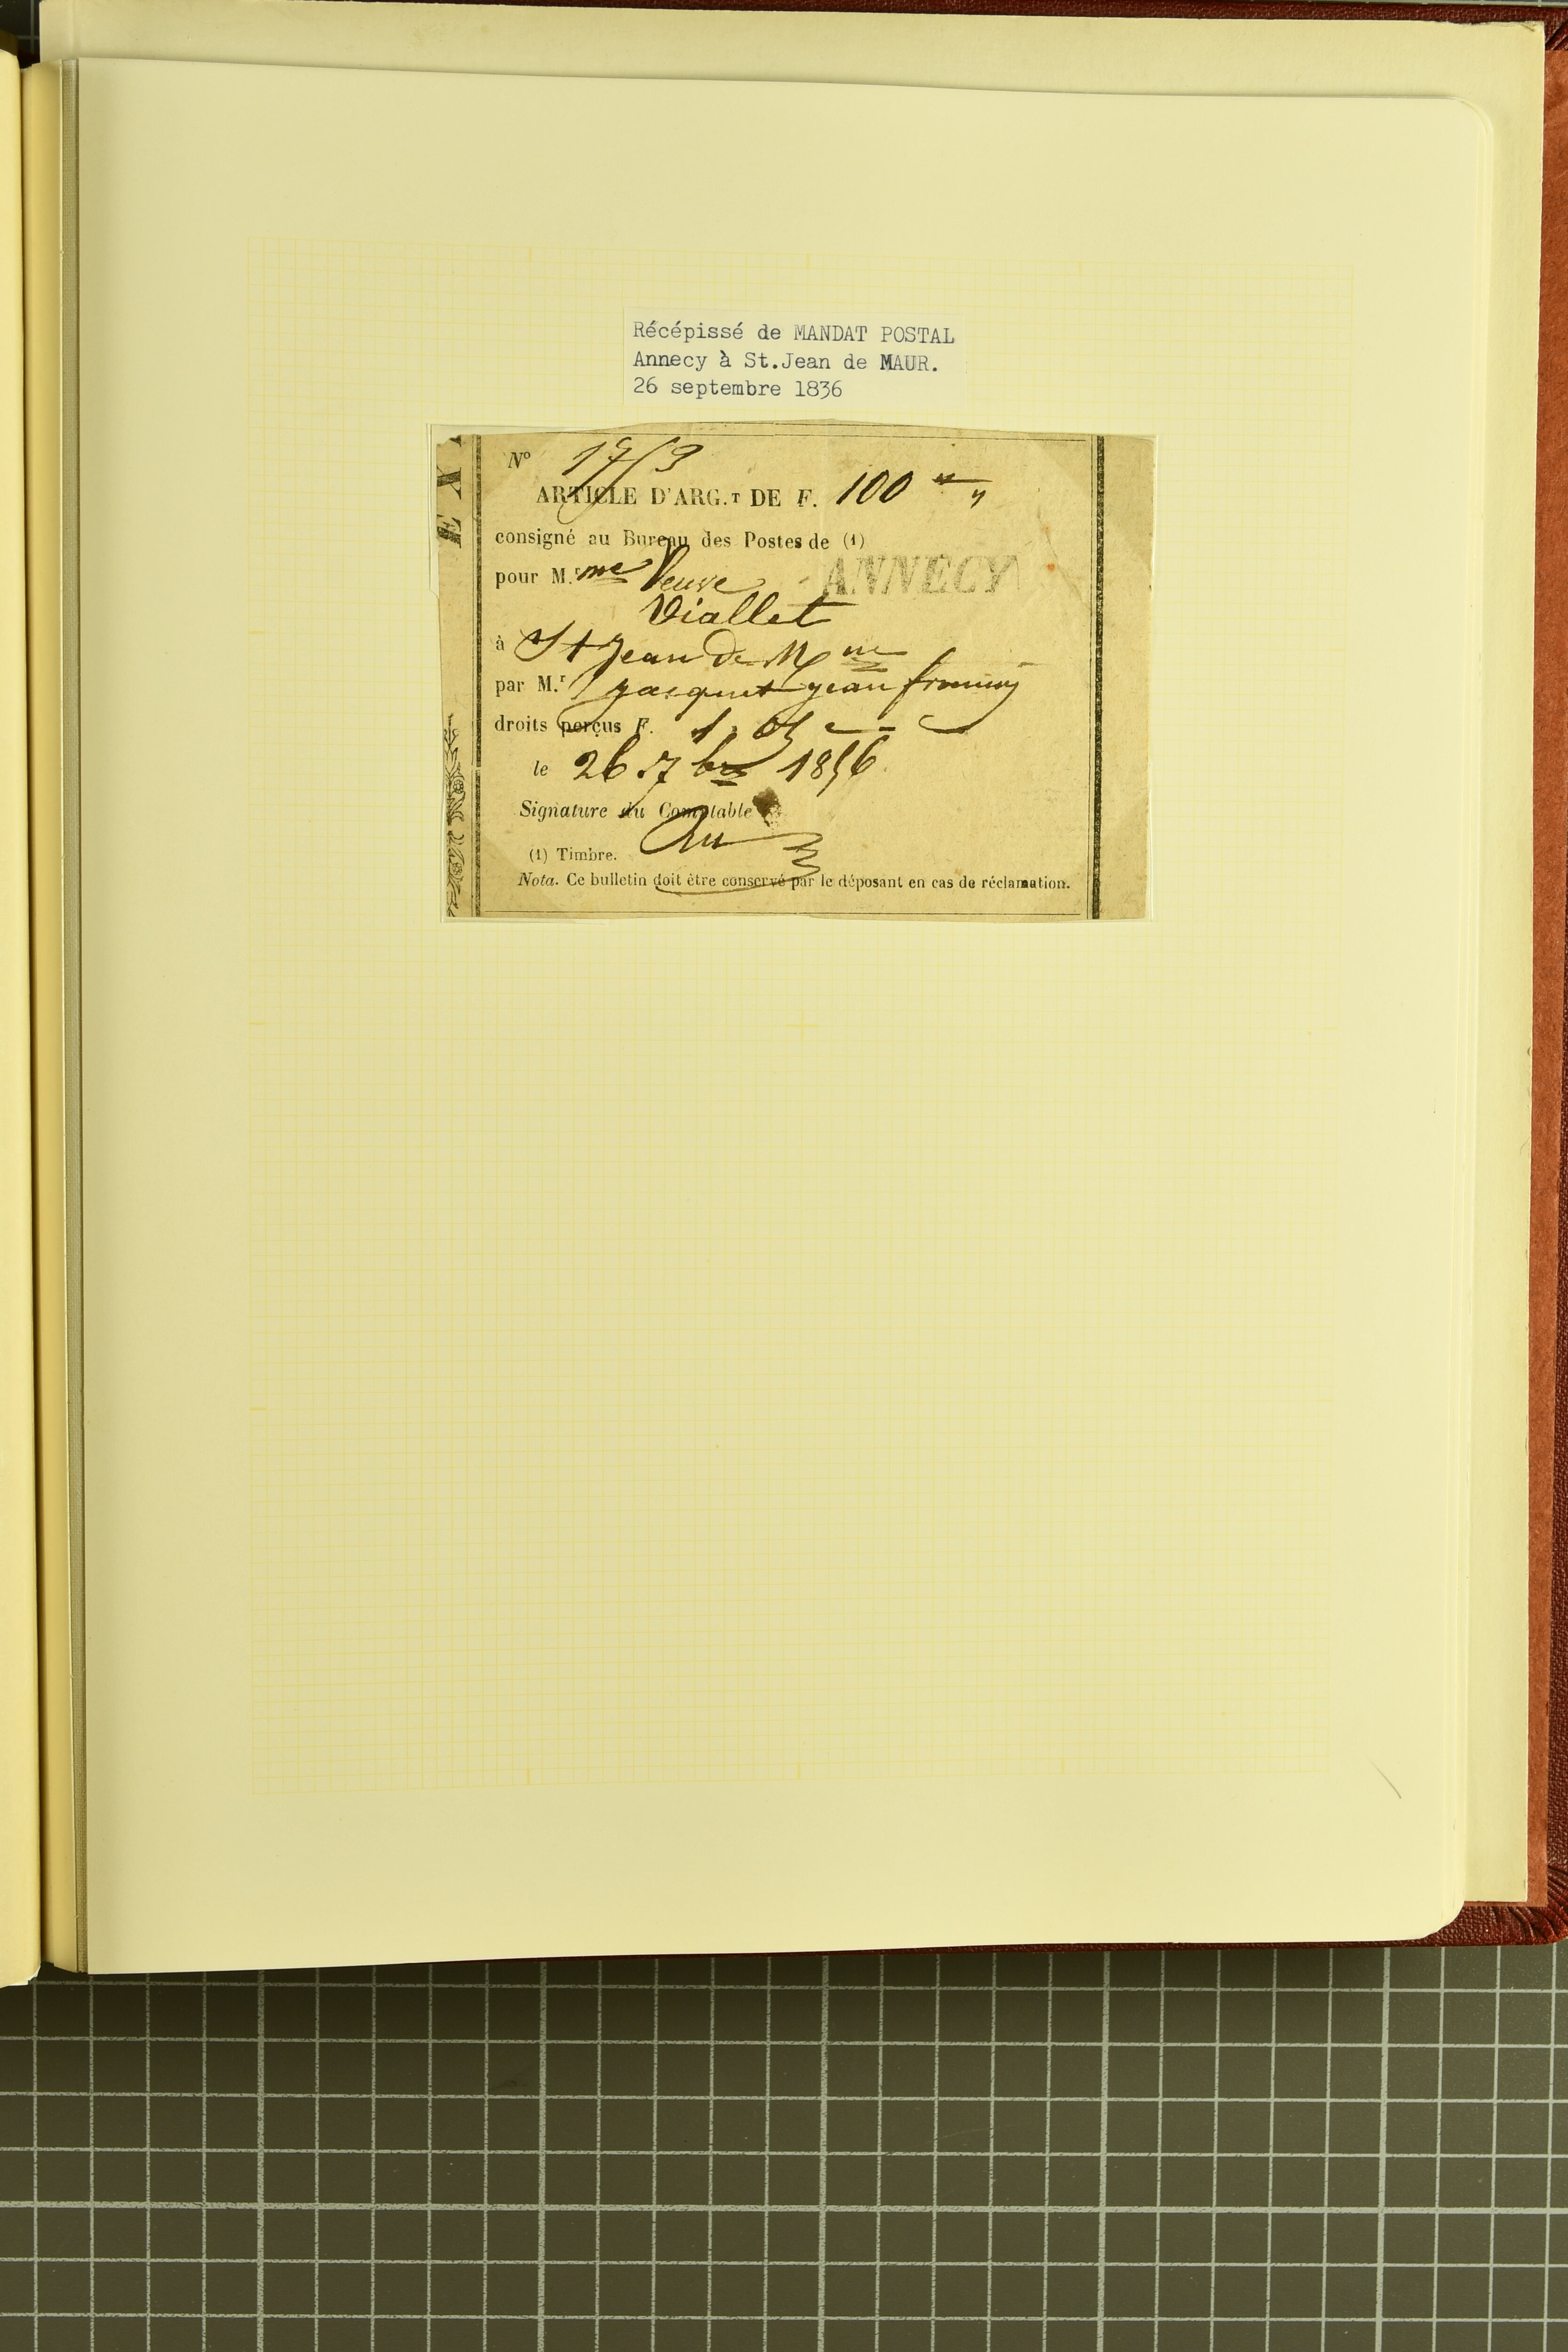 Récépissé de MANDAT POSTAL
Annecy à St.Jean de MAUR.
26 septembre 1836
E X
N°
ARTICLE D'ARG.T DE F. 100 " "
consigné au Bureau des Postes de (1)
ANNECY
pour M.r me Veuve
Viallet
à St Jean de M ne
par M.r Jacquet Jean
droits perçus F. 1
le 26 7bre 1856
Signature du Comptable
(1) Timbre.
Nota. Ce bulletin doit être conservé par le déposant en cas de réclamation.